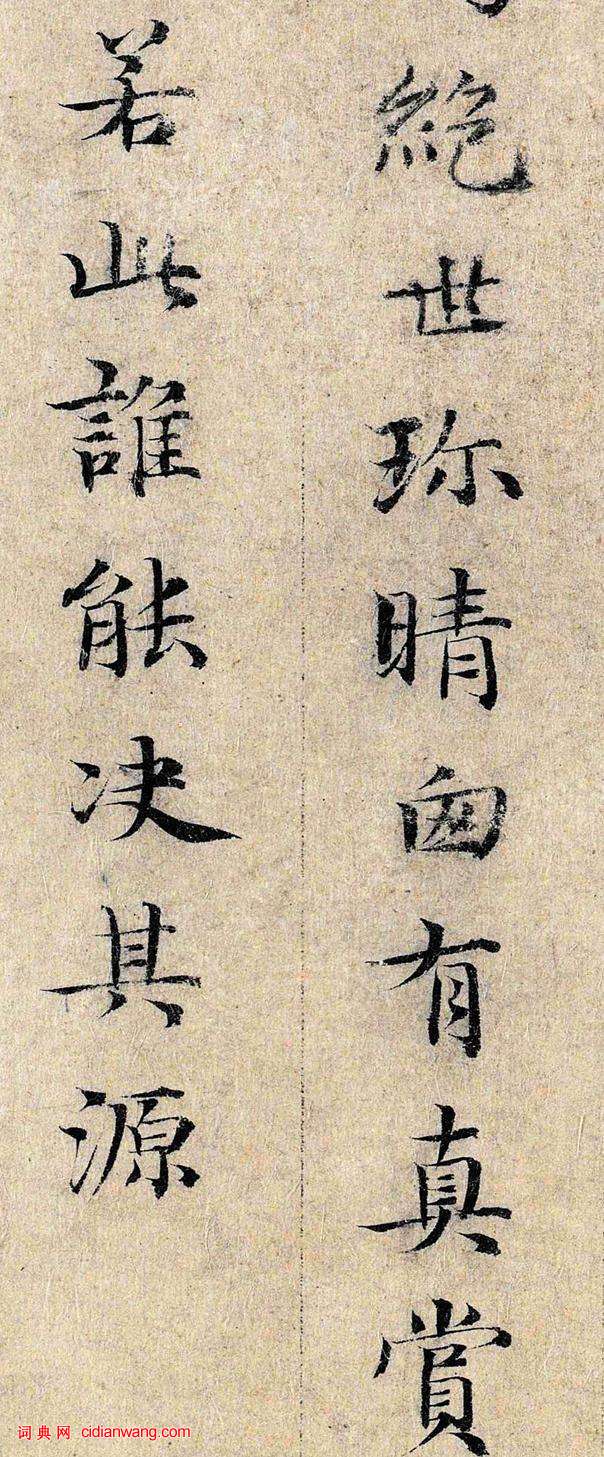 絶世珎晴囱有真賞
若此誰能决其源
词典网 cidianwang.com